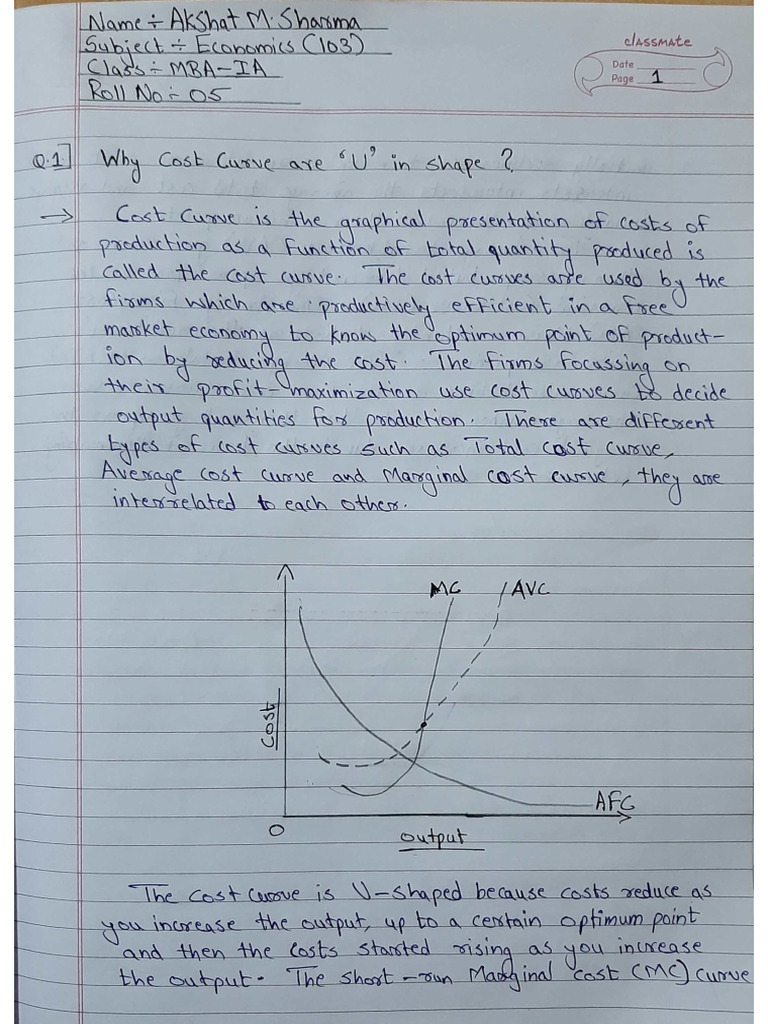 Name ÷ Akshat M. Sharma
Subject ÷ Economics (103)
Class ÷ MBA-IA
Roll No ÷ 05
classmate
Date
Page 1
Q.1] Why Cost Curve are 'U' in shape ?
→ Cost Curve is the graphical presentation of costs of
production as a function of total quantity produced is
called the cost curve. The cost curves are used by the
firms which are productively efficient in a free
market economy to know the optimum point of product-
ion by reducing the cost. The firms focussing on
their profit-maximization use cost curves to decide
output quantities for production. There are different
types of cost curves such as Total cost curve,
Average cost curve and Marginal cost curve, they are
interrelated to each other.
MC
AVC
Cost
AFC
O
output
The cost curve is U-shaped because costs reduce as
you increase the output, up to a certain optimum point
and then the costs started rising as you increase
the output. The short-run Marginal cost (MC) curve